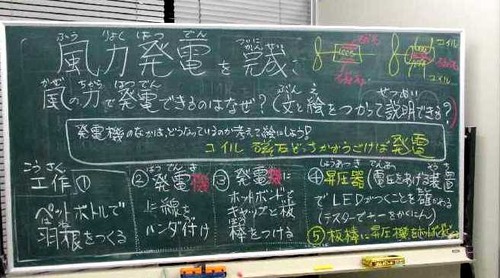 風力発電を完成
ふうりょくはつでん
コイル
コイル
風の力で発電できるのはなぜ?(文と絵をつかって説明できる?)
かぜ ちから はつでん ぶん え せつめい
発電機のなかは、どうなっているのか考えて絵にしよう!
コイル 磁石どっちかがうごけば 発電
こうさく
工作①
ペットボトルで
羽根をつくる
②発電機
に線を
ハンダ付け
③発電機に
ホットボンドで
キャップと板
棒をつける
④昇圧器(電圧をあげる装置
でLEDがつくことを確かめる
(テスターで+ーをかくにん)
⑤板棒に昇圧機を